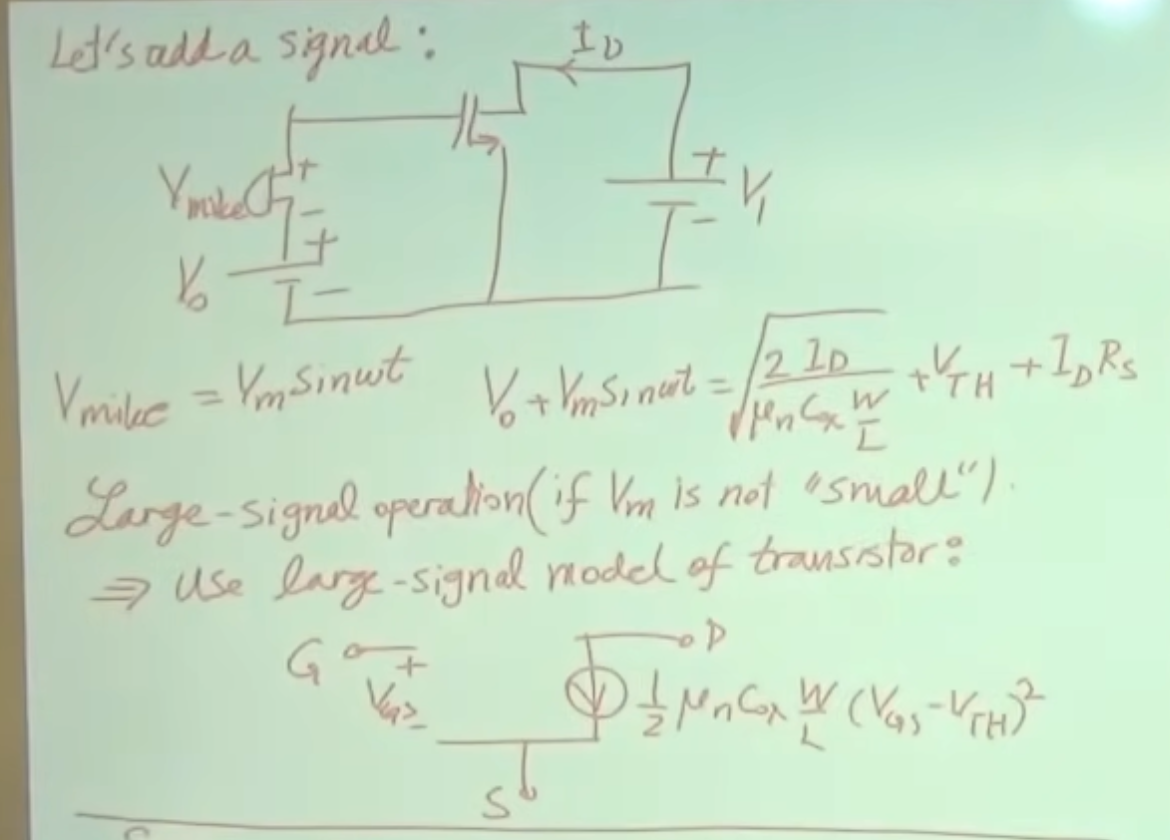 Let's add a signal :
I_D
V_mike + -
+ V_1 -
V_0 + -
V_mike = V_m sinωt    V_0 + V_m sinωt = √(2 I_D / (μ_n C_ox W/L)) + V_TH + I_D R_S
Large-signal operation (if V_m is not "small").
⇒ Use large-signal model of transistor:
G + V_GS - D 1/2 μ_n C_ox W/L (V_GS - V_TH)^2
S